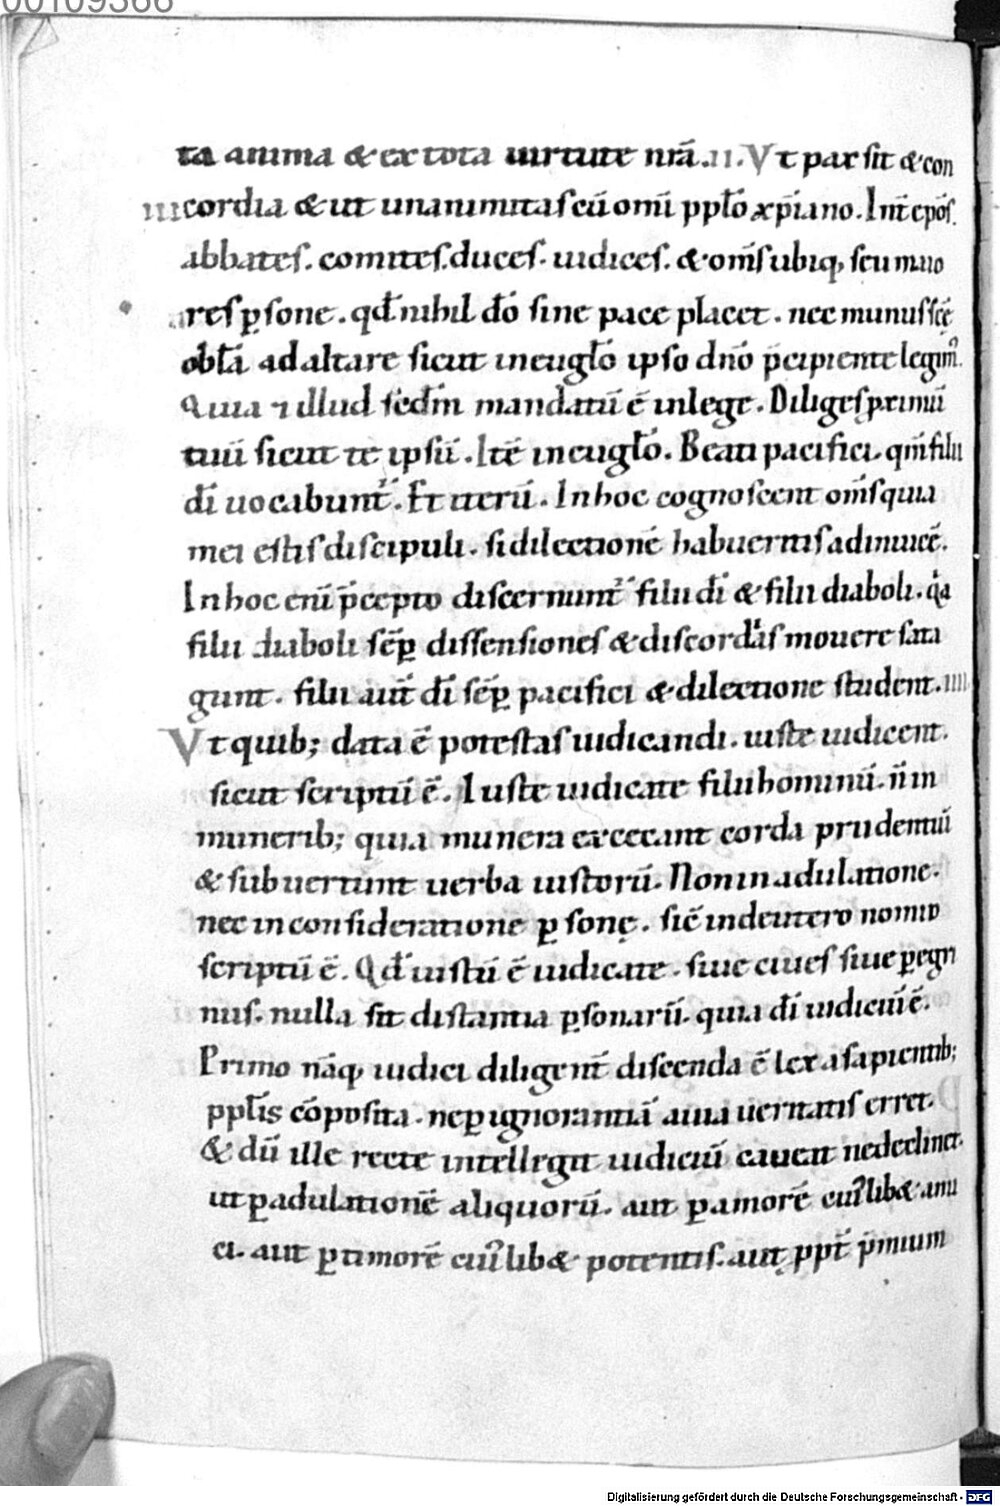 00109366
ta anima & ex tota uirtute nr̄a .II. Vt pax sit & con
III cordia & ut unanimitas cū omi̅ ppl̅o xp̅iano. Int̅ ep̅os.
abbates. comites. duces. iudices. & om̅s ubiq; seu maio
res p̱sone. qd̅ nihil d̅o sine pace placet. nec munus s̅cę
obl̅a ad altare sicut in eugl̅o ipso dn̅o p̅cipiente legim᾽.
Quia ⁊ illud sed̅m mandatū ē in lege. Diliges p̱ximū
tuū sicut te ipsū. Itē in eugl̅o. Beati pacifici. qm̅ filii
d̅i uocabunt᾽. Et iterū. In hoc cognoscent om̅s quia
mei estis discipuli. si dilectionē habueritis adinuicē.
In hoc eni̅ p̅cepto discernunt᾽ filii d̅i & filii diaboli. qa
filii diaboli sēp̱ dissensiones & discordias mouere sata
gunt. filii aut̅ d̅i sēp̱ pacifici & dilectione student. IIII
Vt quib; data ē potestas iudicandi. iuste iudicent.
sicut scriptū ē. Iuste iudicate filii hominū. n̅ in
munerib; quia munera excecant corda prudentiū
& subuertunt uerba iustorū. Non in adulatione.
nec in consideratione p̱sonę. sic̅ in deutero nomio
scriptū ē. Qd̅ iustū ē iudicate. siue ciues siue p̱egri
nus. nulla sit distantia p̱sonarū. quia d̅i iudiciū ē.
Primo nāq; iudici diligent̅ discenda ē lex a sapientib;
ppl̅is cōposita. ne p̱ ignorantiā a uia ueritatis erret.
& dū ille recte intellegit iudiciū caueat ne declinet.
ut p̱ adulationē aliquorū. aut p̱ amorē cui᾽lib& ami
ci. aut p̱ timorē cui᾽lib& potentis. aut ppt̅ p̅mium
Digitalisierung gefördert durch die Deutsche Forschungsgemeinschaft - DFG